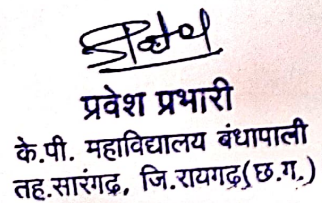 प्रवेश प्रभारी
के.पी. महाविद्यालय बंधापाली
तह.सारंगढ़, जि.रायगढ़(छ.ग.)